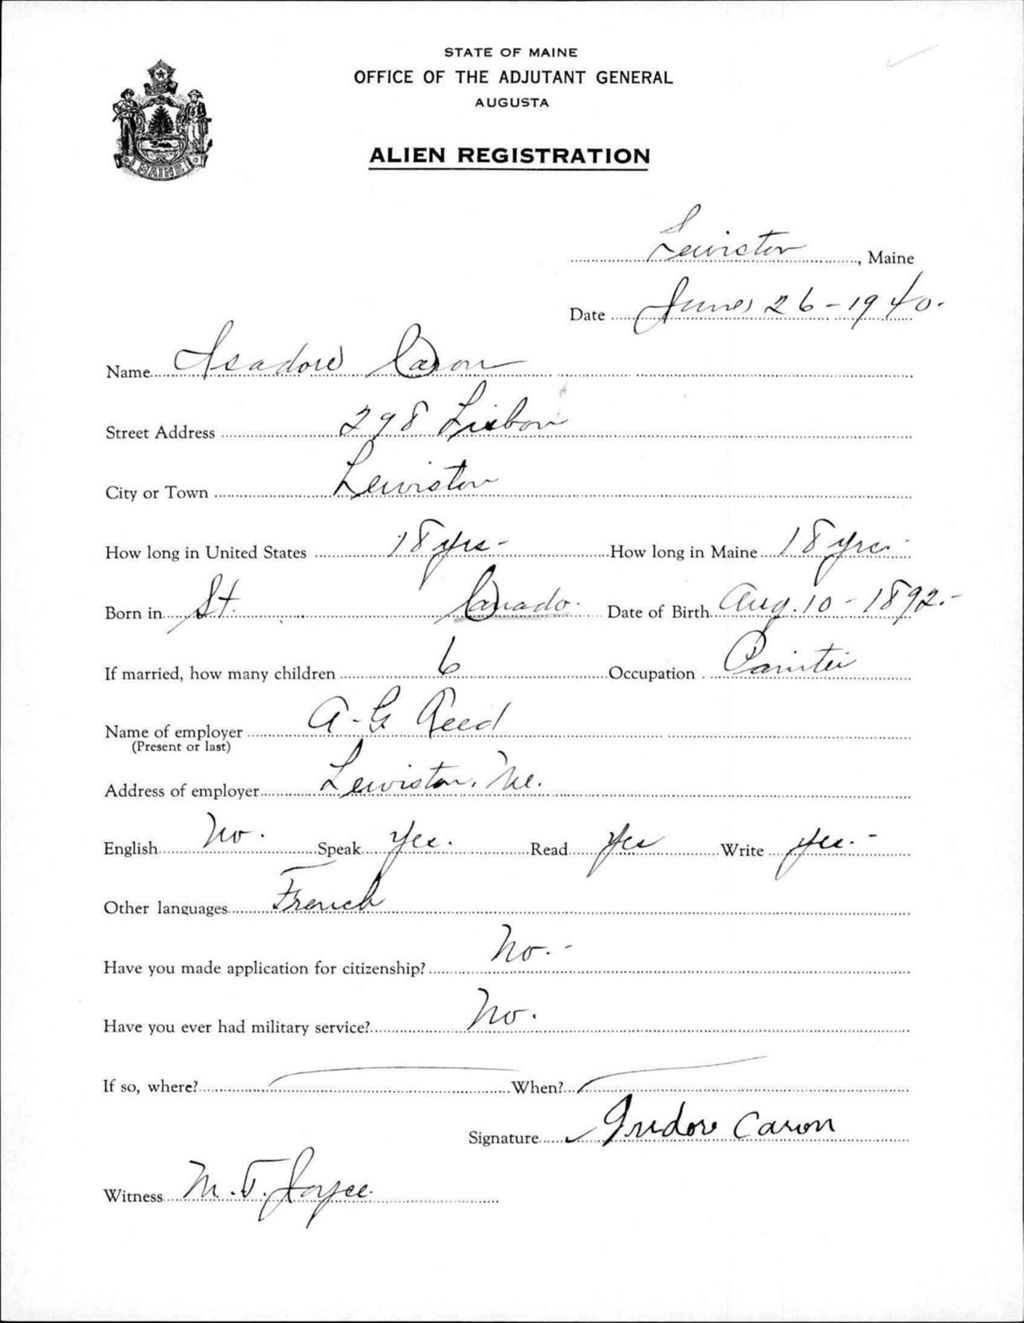 STATE OF MAINE
OFFICE OF THE ADJUTANT GENERAL
AUGUSTA
ALIEN REGISTRATION
MAINE
Lewiston, Maine
Date June 26-1940.
Name Isadore Caron
Street Address 298 Lisbon
City or Town Lewiston
How long in United States 18 yrs- How long in Maine 18 yrs.
Born in St. Canada. Date of Birth Aug. 10-1892.-
If married, how many children 6 Occupation Painter
Name of employer A-G Reed
(Present or last)
Address of employer Lewiston, Me.
English No. Speak Yes. Read Yes Write Yes.-
Other languages French
Have you made application for citizenship? No.-
Have you ever had military service? No.
If so, where? When?
Signature Caron
Witness M.T. Joyce.